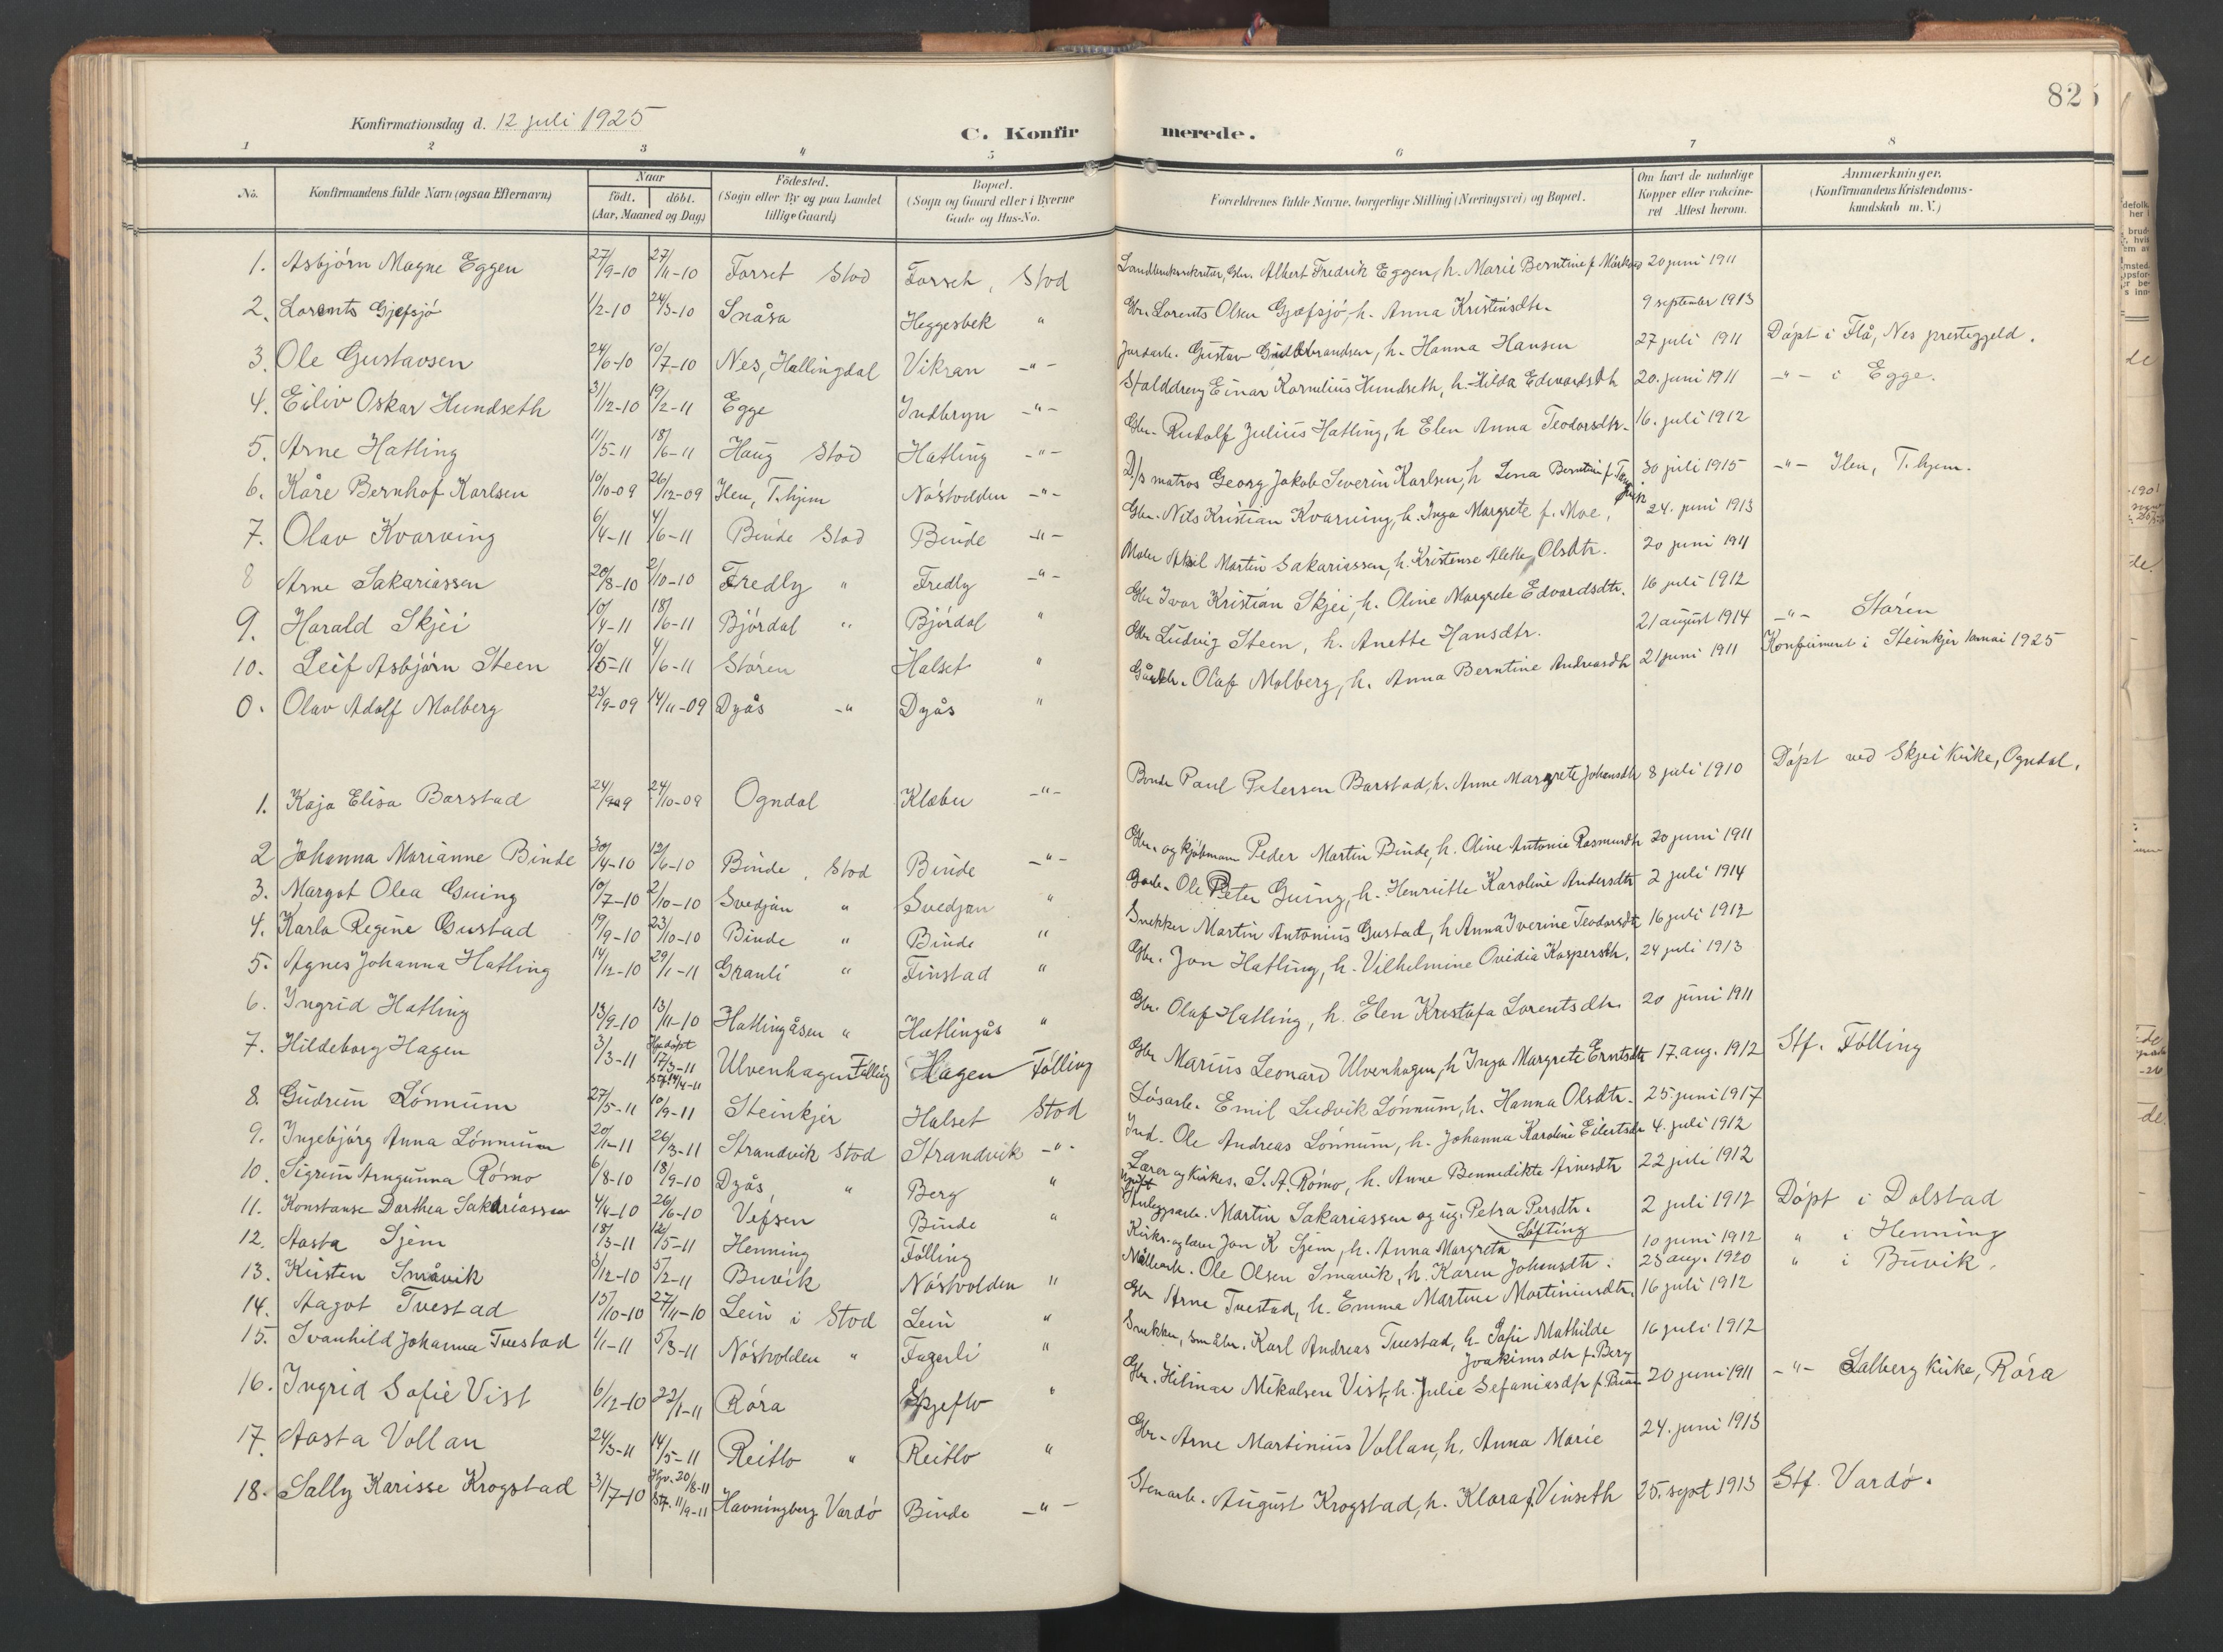 825
Konfirmationsdag d. 12 juli 1925
C. Konfir merede.
1 2 3 4 5 6 7 8
No. Konfirmandens fulde Navn (ogsaa Efternavn) Naar født. døbt. (Aar, Maaned og Dag) Födested. (Sogn eller By og paa Landet tillige Gaard) Bopæl. (Sogn og Gaard eller i Byerne Gade og Hus-No. Forældrenes fulde Navne, borgerlige Stilling (Næringsvei) og Bopæl. Om havt de naturlige Kopper eller vakcineret Attest herom. Anmærkninger. (Konfirmandens Kristendoms-kundskab m. V.)
1. Asbjörn Magne Eggen 27/9-10 27/11-10 Forset Stod Forseth, Stod Gbr. Albert Fredrik Eggen, h. Marie Berntine f. 20 juni 1911
2. Lorents Gjefsjö 1/2-10 24/3-10 Snåsa Heggesbek " Gbr. Lorents Olsen Gjæfsjö, h. Anna Kristinsdtr. 9 september 1913
3. Ole Gustavsen 24/6-10 10/7-10 Nes, Hallingdal Vikran -"- Jordarb. Gustav Guldbrandsen, h. Hanna Hansen 27 juli 1911 Döpt i Flå, Nes prestegjeld.
4. Eiliv Oskar Hundseth 31/12-10 19/2-11 Egge Indbryn -"- Stalddreng Einar Kornelius Hundseth, h. Hilda Edvardsdtr 20. juni 1911 -"- i Egge.
5. Arne Hatling 11/5-11 18/6-11 Haug Stod Hatling -"- Gbr. Rudolf Julius Hatling, h. Elen Anna Teodorsdtr. 16. juli 1912
6. Kåre Bernhof Karlsen 10/10-09 26/12-09 Ilen, T.hjem Nöstvolden -"- D/s matros Georg Jakob Severin Karlsen, h. Lena Berntine f. 30 juli 1915 -"- Ilen, T.hjem.
7. Olav Kvarving 6/4-11 4/6-11 Binde Stod Binde -"- Gbr. Nils Kristian Kvarving, h. Inga Margrete f. Moe, 24. juni 1913
8 Arne Sakariassen 20/8-10 2/10-10 Fredly " Fredly -"- Maler Aksel Martin Sakariassen, h. Kristense Alette Olsdtr. 20 juni 1911
9. Harald Skjei 10/4-11 18/6-11 Björdal " Björdal " Gbr Ivar Kristian Skjei, h. Oline Margrete Edvardsdtr. 16 juli 1912
10. Leif Asbjörn Steen 10/5-11 4/6-11 Stören Halset " Gbr. Ludvig Steen, h. Anette Hansdtr. 21 august 1914 -"- Stören
0. Olav Adolf Molberg 23/9-09 14/11-09 Dyås -" Dyås " Gårdbr. Olaf Molberg, h. Anna Berntine Andreasdtr 21 juni 1911 Konfirmert i Steinkjer 10 mai 1925
1. Kaja Elisa Barstad 24/9-09 24/10-09 Ogndal Klæbu -"- Bonde Paul Petersen Barstad, h. Anne Margrete Johansdtr 8 juli 1910 Döpt ved Skjei Kirke, Ogndal.
2 Johanna Marianne Binde 30/4-10 12/6-10 Binde, Stod Binde -"- Gbr. og kjöbmann Peder Martin Binde, h. Oline Antonie Rasmusdtr 20 juni 1911
3. Margot Olea Guing 10/7-10 2/10-10 Svedjan " Svedjan " Ole Peter Guing, h. Henriette Karoline Andersdtr 2 juli 1914
4. Karla Regine Gustad 19/9-10 23/10-10 Binde " Binde " Snekker Martin Antonius Gustad, h Anna Iverine Teodorsdtr 16 juli 1912
5. Agnes Johanna Hatling 14/12-10 29/1-11 Granli " Finstad " Gbr. Jon Hatling, h. Vilhelmine Ovidia Kaspersdtr. 24 juli 1913
6. Ingrid Hatling 13/9-10 13/11-10 Hatlingåsen " Hatlingås " Gbr. Olaf Hatling, h. Elen Kristofa Lorentsdtr. 20 juni 1911
7. Hildeborg Hagen 3/3-11 Hjedöpt 17/3-11 Stf. 14/4-11 Ulvenhagen Fölling Hagen Fölling Gbr Marius Leonard Ulvenhagen, h Inga Margrete Erntsdtr 17. aug. 1912 Stf. Fölling
8. Gudrun Lönnum 27/5-11 10/9-11 Steinkjer Halset Stod Lösarb. Emil Ludvik Lönnum, h. Hanna Olsdtr. 25. juni 1917
9. Ingebjörg Anna Lönnum 20/1-11 26/3-11 Strandvik Stod Strandvik -"- Ind. Ole Andreas Lönnum, h. Johanna Karoline Eilertsdtr 4. juli 1912
10. Sigrun Arngunna Römo 6/8-10 18/9-10 Dyås, " Berg " Lærer og Kirkes. S. A. Römo, h. Anne Bennedikte Arnesdtr 22 juli 1912
11. Konstanse Dorthea Sakariassen 4/4-10 26/6-10 Vefsen Binde " Ugift Anlegsarb. Martin Sakariassen og ug. Petra Persdtr. Löfting 2 juli 1912 Döpt i Dolstad
12. Aasta Sjem 18/3-11 12/5-11 Henning Fölling Kirks. og lærer Jon K Sjem, h. Anna Margreta 10 juni 1912 " i Henning
13. Kirsten Småvik 3/12-10 5/2-11 Buvik Nöstvolden " Ole Olsen Småvik, h. Karen Johansdtr. 28 aug. 1920 " i Buvik.
14. Aagot Tvestad 15/10-10 27/11-10 Lein i Stod Lein " Gbr Arne Tvestad, h. Emma Martine Martiniusdtr. 16 juli 1912
15. Svanhild Johanna Tvestad 1/1-11 5/3-11 Nöstvolden " Fagerli " Snekker, småbr. Karl Andreas Tvestad, h. Sofie Mathilde Joakimsdtr f. Berg 16 juli 1912
16. Ingrid Sofie Vist 6/12-10 22/1-11 Röra Skjeflo " Gbr. Hilmar Mikalsen Vist, h. Julie Sefaniasdtr f. 20 juni 1911 -"- Salberg kirke, Röra
17. Aasta Vollan 24/3-11 14/5-11 Reitlo " Reitlo " Gbr. Arne Martinius Vollan, h. Anna Marie 24. juni 1913
18. Sally Karisse Krogstad 31/7-10 Hjv. 20/8-11 Stf. 11/9-11 Havningberg Vardö Binde -"- Stenarb. August Krogstad, h. Klara f. Vinseth 25. sept 1913 Stf. Vardö.